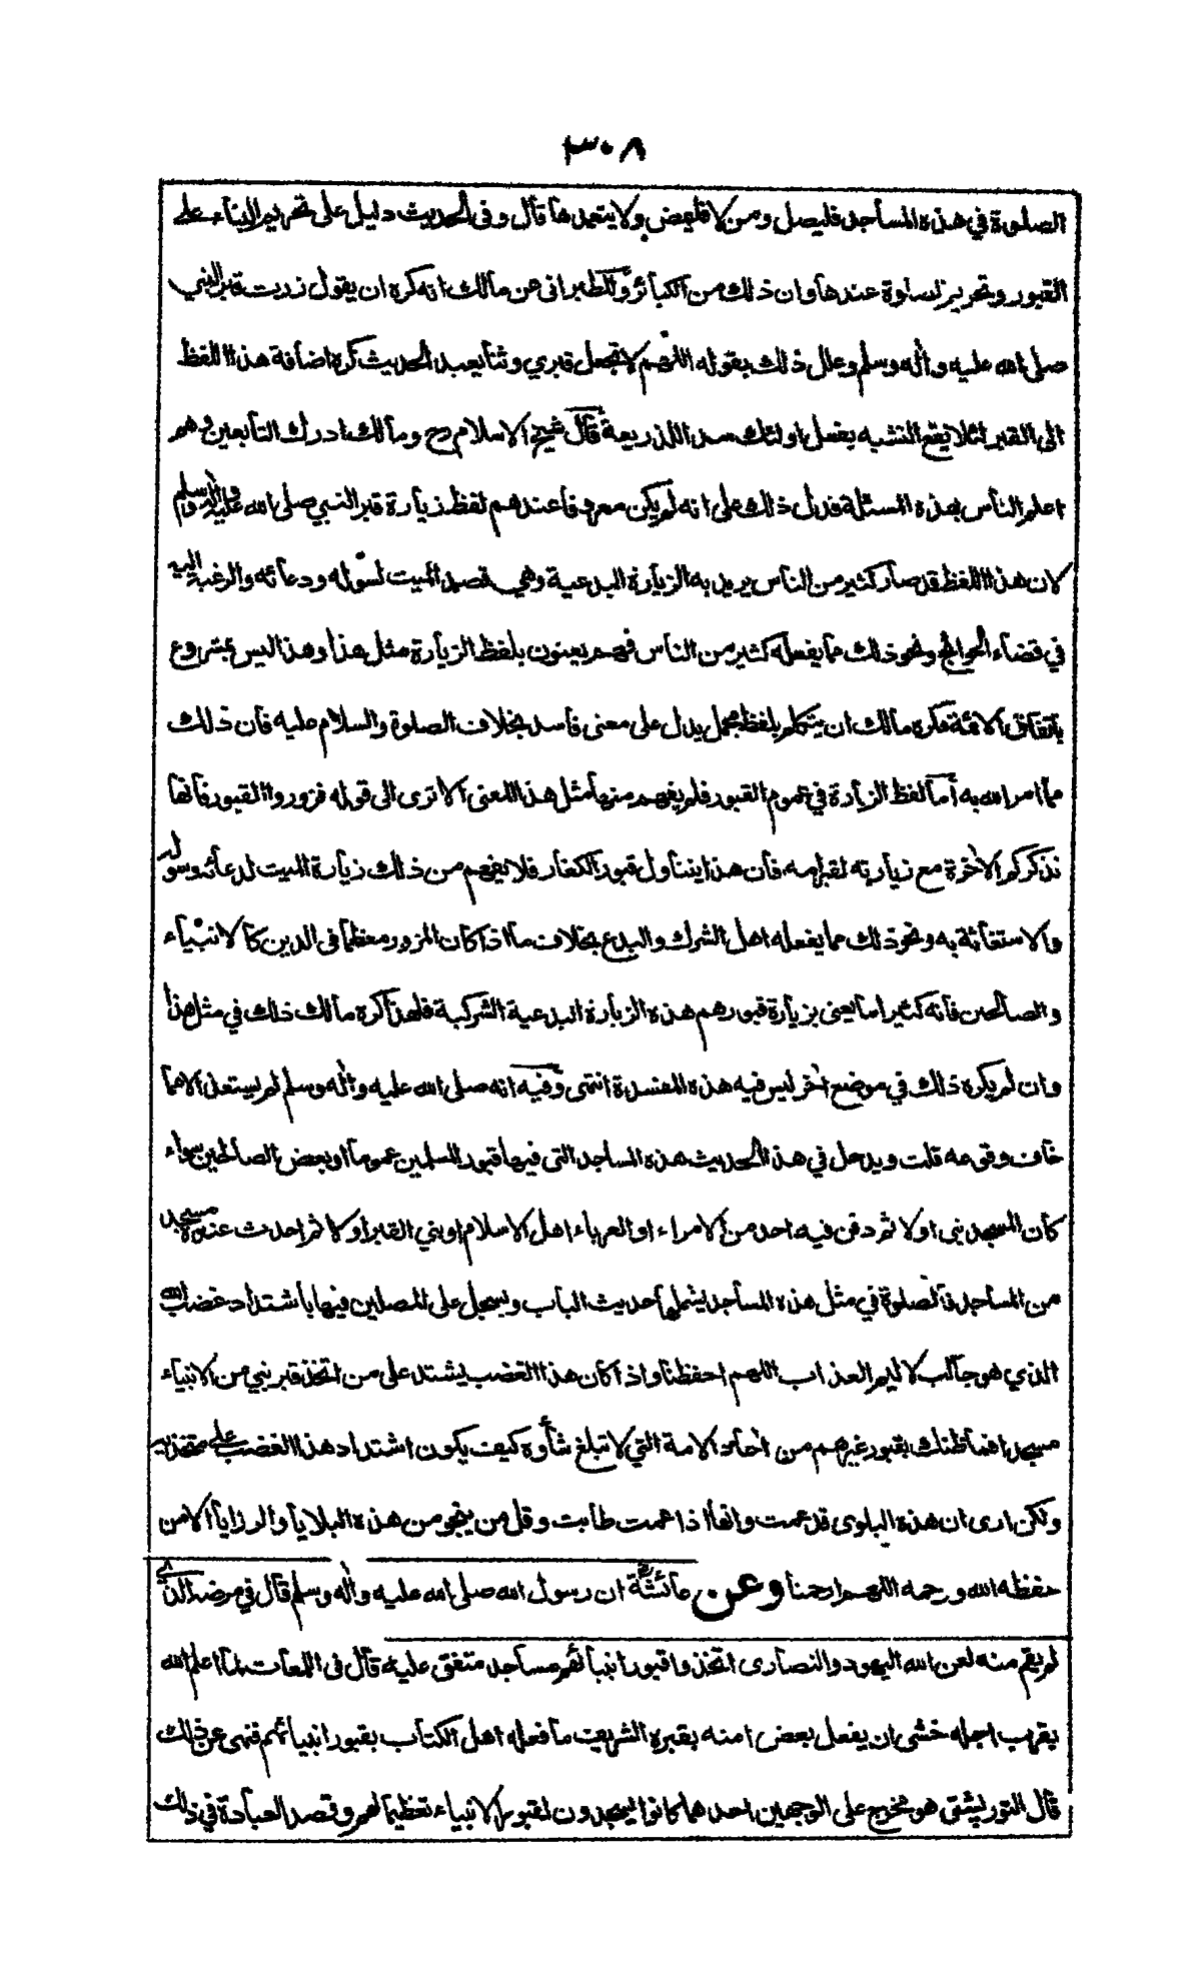 ٣٠٨
الصلوة في هذه المساجد فليصل ومن لا فليمض ولا يتعمدها قال وفي الحديث دليل على تحريم البناء على
القبور وتحريم الصلوة عندها وان ذلك من الكبائر وللطبراني عن مالك انه كره ان يقول زرت قبر النبي
صلى الله عليه وآله وسلم وعلل ذلك بقوله اللهم لا تجعل قبري وثنا يعبد الحديث كره اضافة هذا اللفظ
الى القبر لئلا يقع التشبه بفعل اولئك سدا للذريعة قال شيخ الاسلام رح ومالك ادرك التابعين وهم
اعلم الناس بهذه المسئلة فدل ذلك على انه لم يكن معروفا عندهم لفظ زيارة قبر النبي صلى الله عليه وآله وسلم
لان هذا اللفظ قد صار كثير من الناس يريد به الزيارة البدعية وهي قصد الميت لسؤله ودعائه والرغبة اليه
في قضاء الحوائج ونحو ذلك مما يفعله كثير من الناس فهم يعنون بلفظ الزيارة مثل هذا وهذا ليس بمشروع
باتفاق الائمة فكره مالك ان يتكلم بلفظ مجمل يدل على معنى فاسد بخلاف الصلوة والسلام عليه فان ذلك
مما امر الله به أما لفظ الزيارة في عموم القبور فلم يفهم منها مثل هذا المعنى الا ترى الى قوله فزوروا القبور فانها
تذكركم الآخرة مع زيارته لقبر امه فان هذا يتناول قبور الكفار فلا يفهم من ذلك زيارة الميت لدعائه وسؤله
والاستغاثة به ونحو ذلك مما يفعله اهل الشرك والبدع بخلاف ما اذا كان المزور معظما في الدين كالانبياء
والصالحين فانه كثيرا ما يعنى بزيارة قبورهم هذه الزيارة البدعية الشركية فلهذا كره مالك ذلك في مثل هذا
وان لم يكره ذلك في موضع آخر ليس فيه هذه المفسدة انتهى وفيه انه صلى الله عليه وآله وسلم لم يستعذ الا مما
خاف وقوعه قلت ويدخل في هذا الحديث هذه المساجد التي فيها قبور المسلمين عموما او بعض الصالحين سواء
كان المسجد بني اولا ثم دفن فيه احد من الامراء او الغرباء اهل الاسلام او بني القبر اولا ثم احدث عنده مسجد
من المساجد فالصلوة في مثل هذه المساجد يشملها حديث الباب ويسجل على المصلين فيها باشتداد غضب الله
الذي هو جالب لاليم العذاب اللهم احفظنا واذا كان هذا الغضب يشتد على من اتخذ قبر نبي من الانبياء
مسجدا فما ظنك بقبور غيرهم من آحاد الامة التي لا تبلغ شأوه كيف يكون اشتداد هذا الغضب على متخذيه
ولكن ارى ان هذه البلوى قد عمت وانها اذا عمت طابت وقل من ينجو من هذه البلايا والرزايا الا من
حفظه الله ورحمه اللهم ارحمنا وعن عائشة ان رسول الله صلى الله عليه وآله وسلم قال في مرضه الذي
لم يقم منه لعن الله اليهود والنصارى اتخذوا قبور انبيائهم مساجد متفق عليه قال في اللمعات لما اعلم الله
بقرب اجله خشي ان يفعل بعض امته بقبره الشريف ما فعله اهل الكتاب بقبور انبيائهم فنهى عن ذلك
قال التوربشتي هو مخرج على الوجهين احدهما كانوا يسجدون لقبور الانبياء تعظيما لهم وقصد العبادة في ذلك